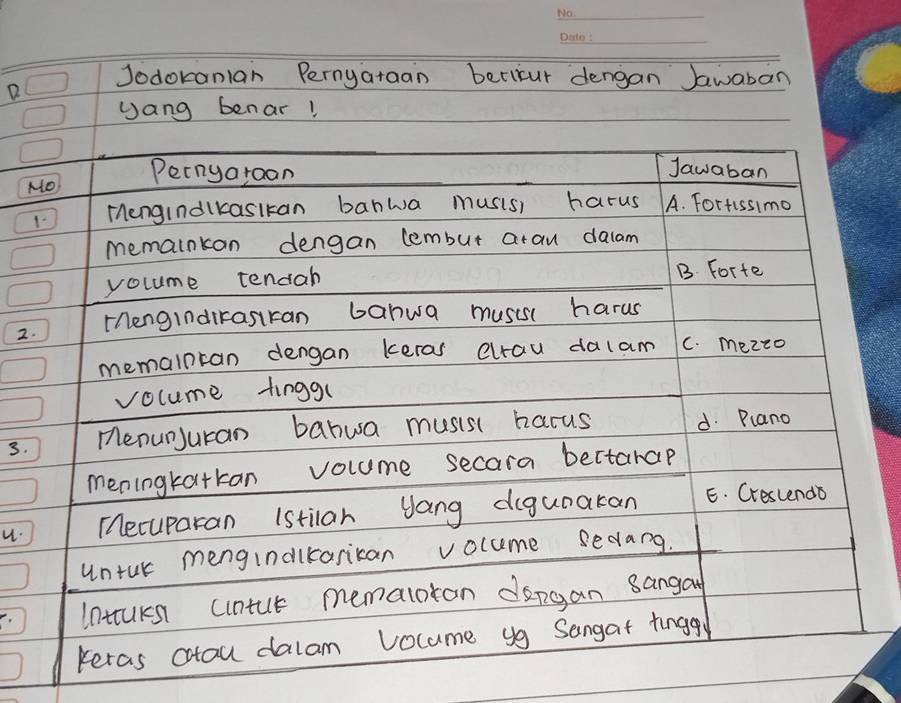 No.
Date :
D Jodokanlah Pernyataan berikut dengan Jawaban
yang benar !
No Pernyataan Jawaban
1. Mengindikasikan bahwa musisi harus A. Fortissimo
memainkan dengan lembut atau dalam
volume rendah B. Forte
2. Mengindikasikan bahwa musisi harus
memainkan dengan keras atau dalam C. mezzo
volume tinggi
3. Menunjukan bahwa musisi harus d. Piano
meningkatkan volume secara bertahap
4. Merupakan istilah yang digunakan E. Crescendo
untuk mengindikasikan volume sedang.
5. Intruksi untuk memainkan dengan sangat
keras atau dalam volume yg Sangat tinggi